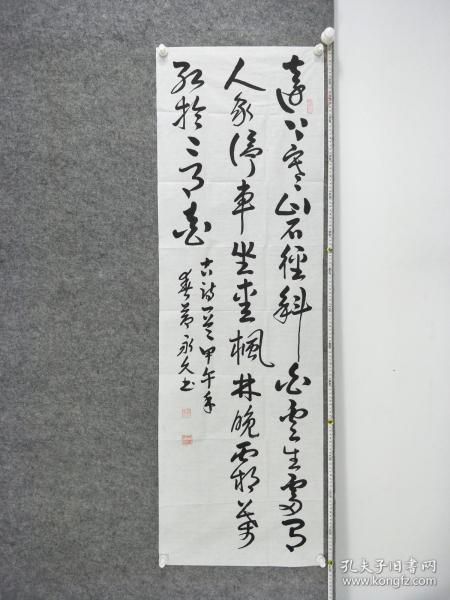 遠上寒山石徑斜白雲生處有
人家停車坐愛楓林晚霜葉
紅於二月花
古詩一首甲午年
春永久書
孔夫子旧书网
www.kongfz.com